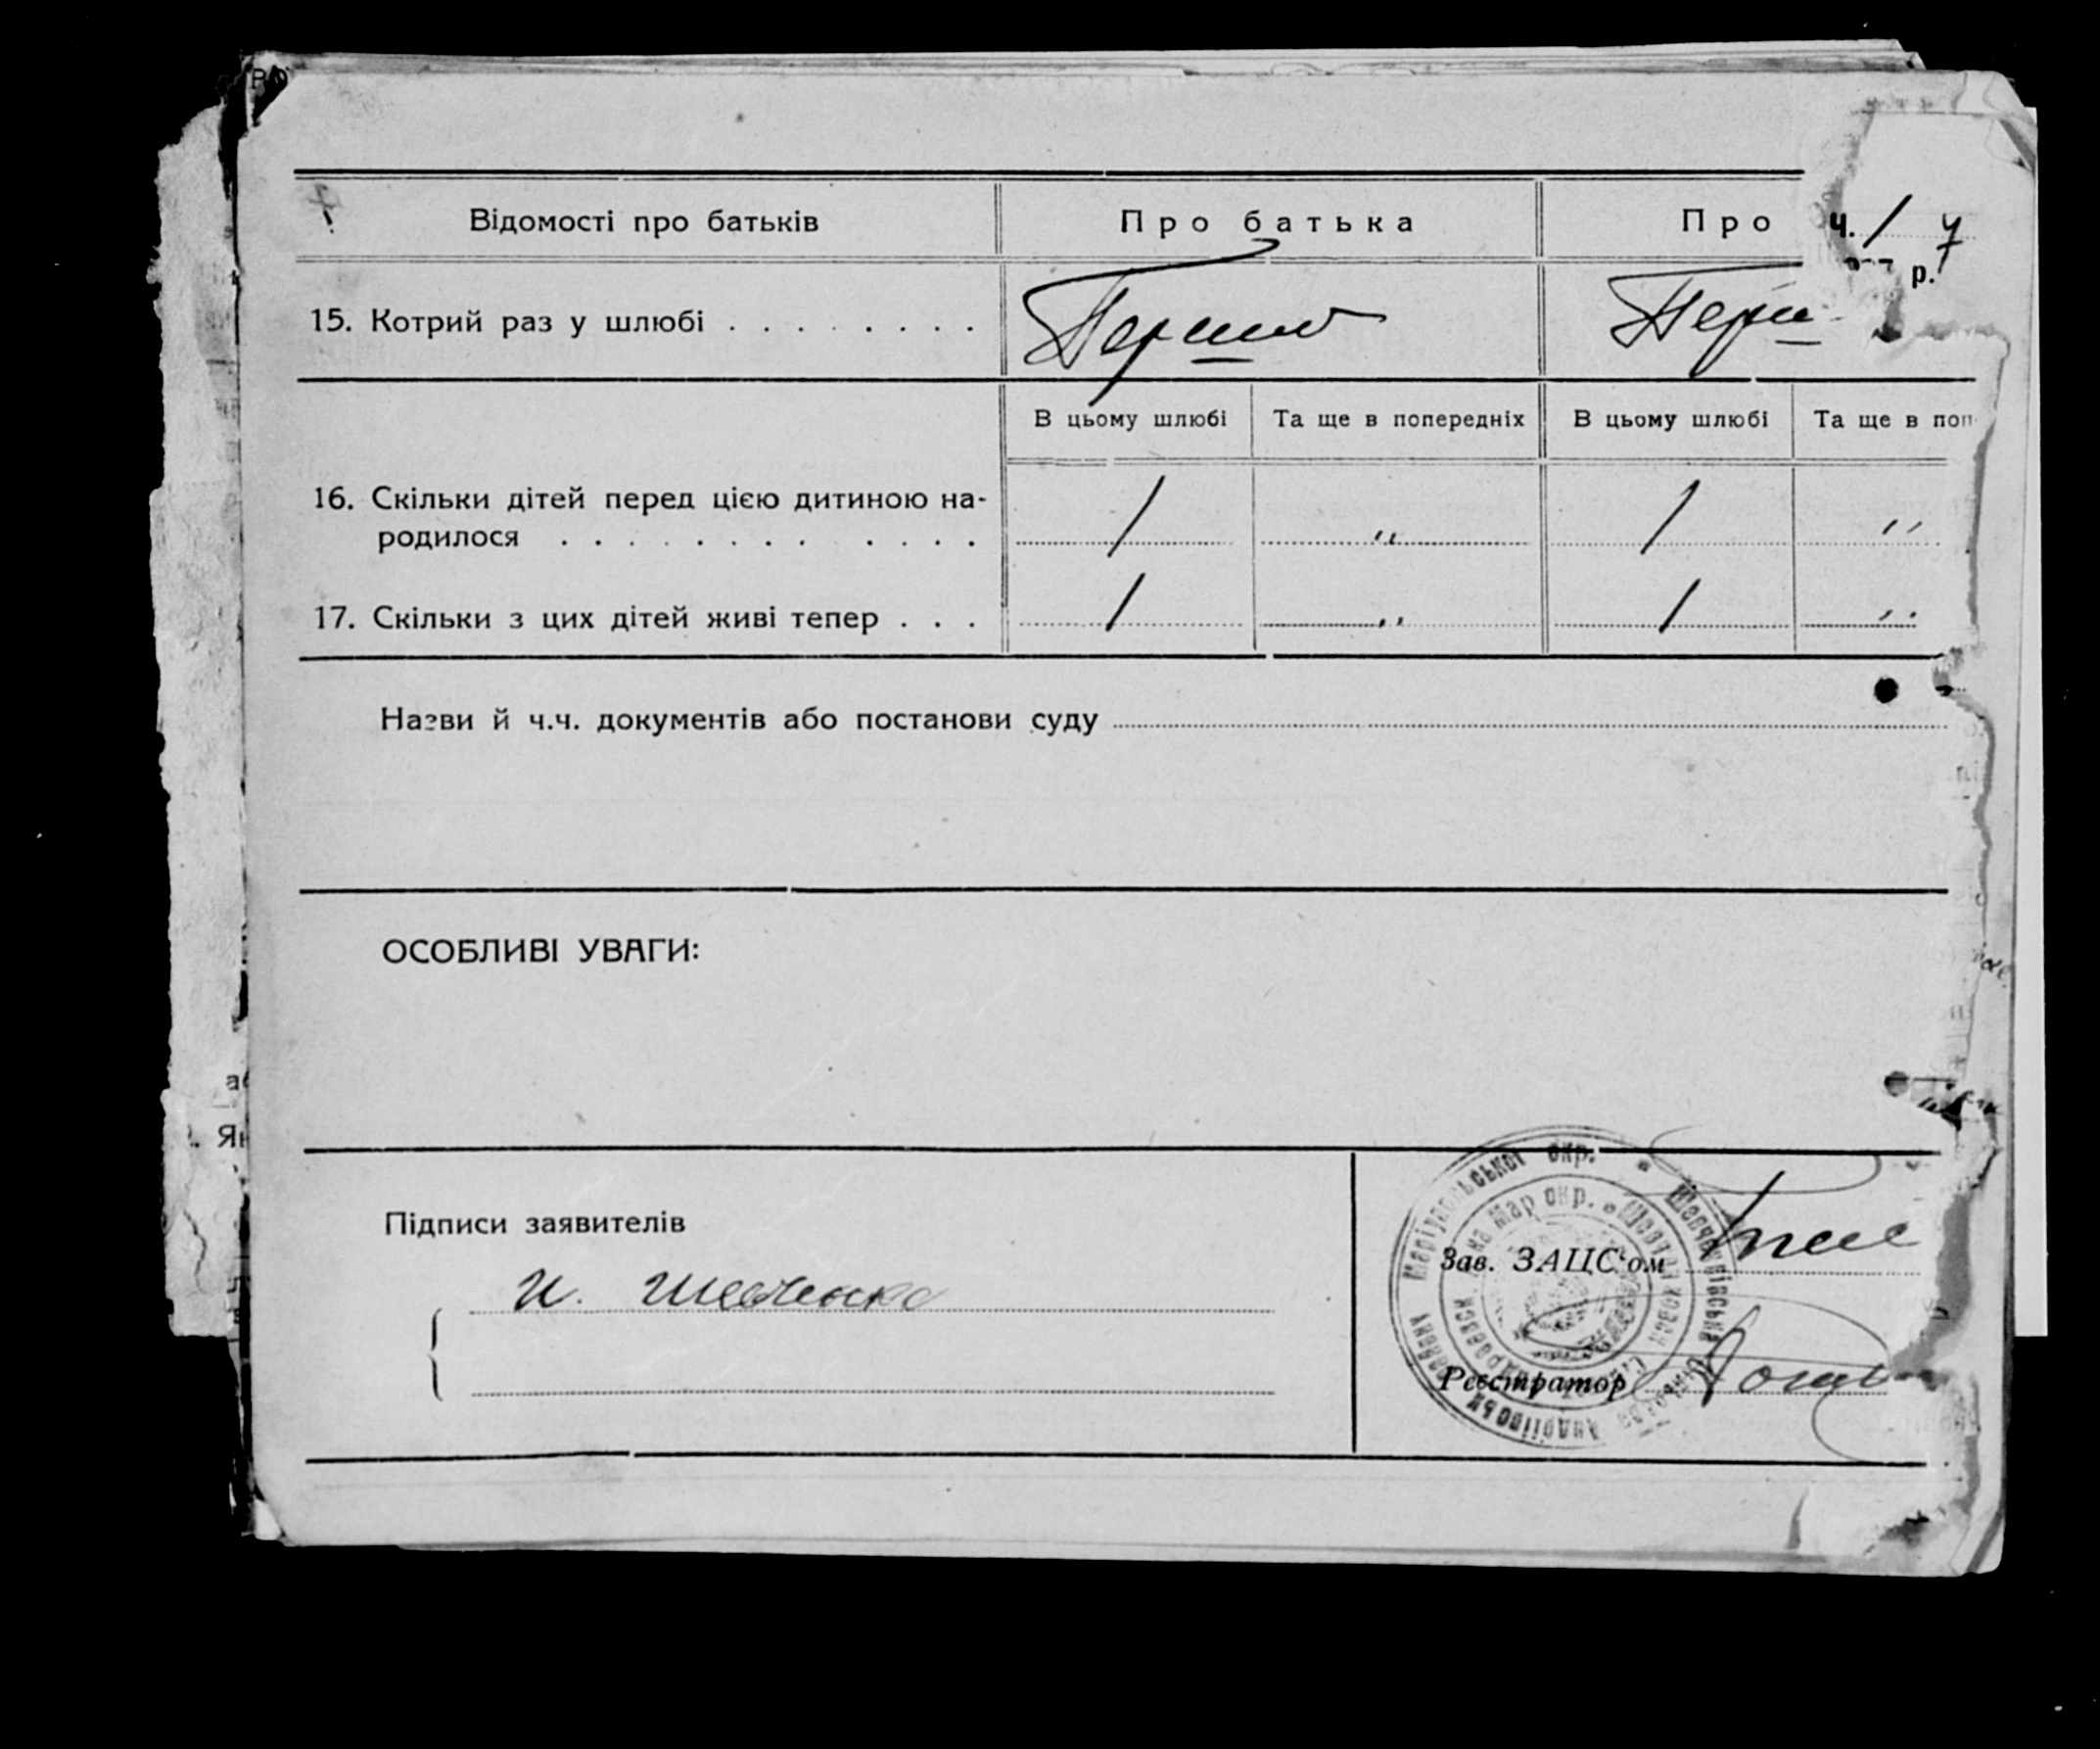 Відомості про батьків
Про батька
Про
ч. / 7
р.
15. Котрий раз у шлюбі . . . . . . . .
Перший
Перш
В цьому шлюбі
Та ще в попередніх
В цьому шлюбі
Та ще в поп
16. Скільки дітей перед цією дитиною на-
родилося . . . . . . . . . . . .
/ " / "
17. Скільки з цих дітей живі тепер . . .
/ " / "
Назви й ч.ч. документів або постанови суду
ОСОБЛИВІ УВАГИ:
Підписи заявителів
И. Шевченко
Зав. ЗАЦС'ом
Реєстратор
Маріупільської окр.
Мар окр.